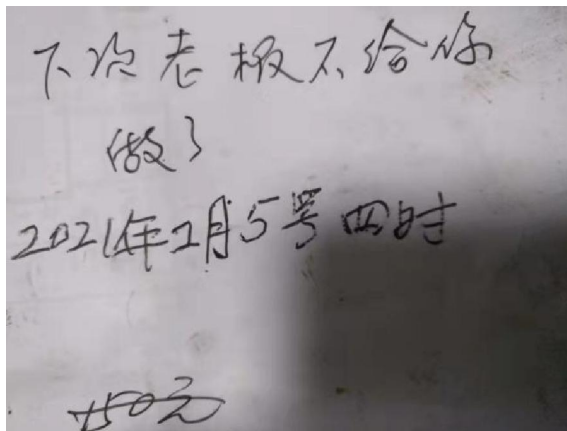 下次老板不给你
做了
2021年2月5号四时
150元